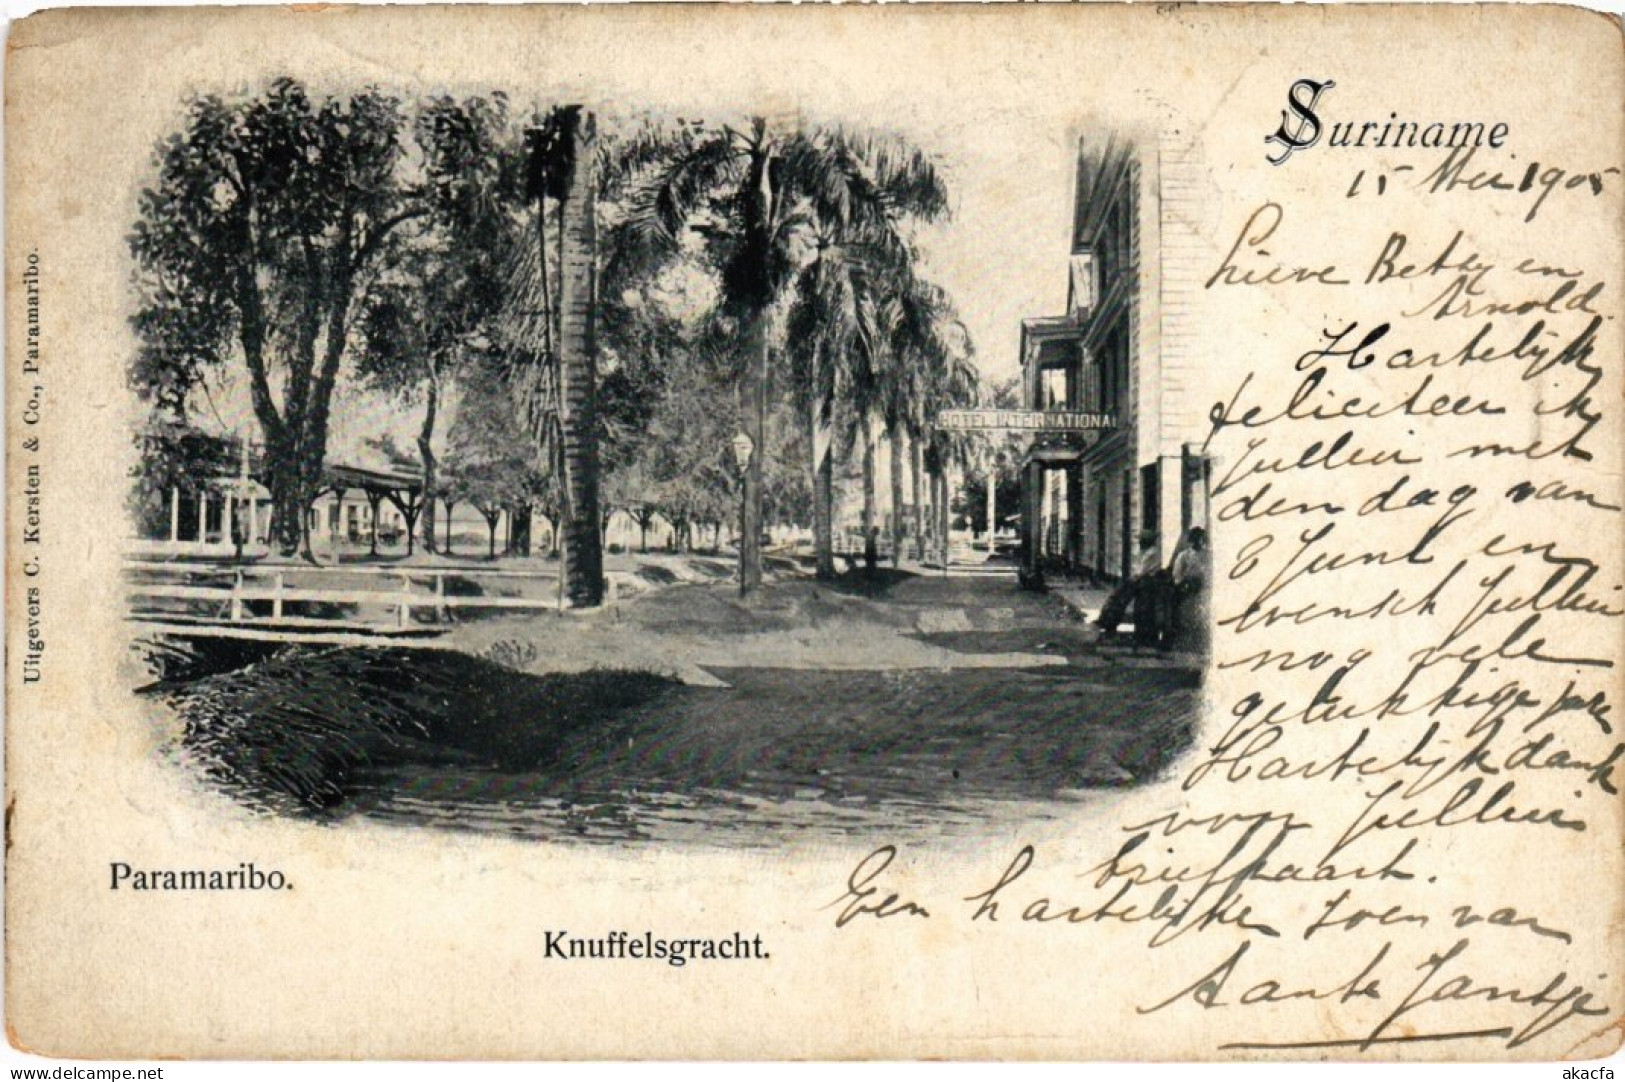 Suriname
15 Mei 1905
Lieve Betsy en
Arnold.
Hartelijk
feliciteer ik
Jullui met
den dag van
8 Juni en
wensch Jullui
nog vele
gelukkige jaren
Hartelijk dank
voor Jullui
briefkaart.
Een hartelijke zoen van
Tante Jantje
HOTEL INTERNATIONAL
Paramaribo.
Knuffelsgracht.
Uitgevers C. Kersten & Co., Paramaribo.
www.delcampe.net
akacfa